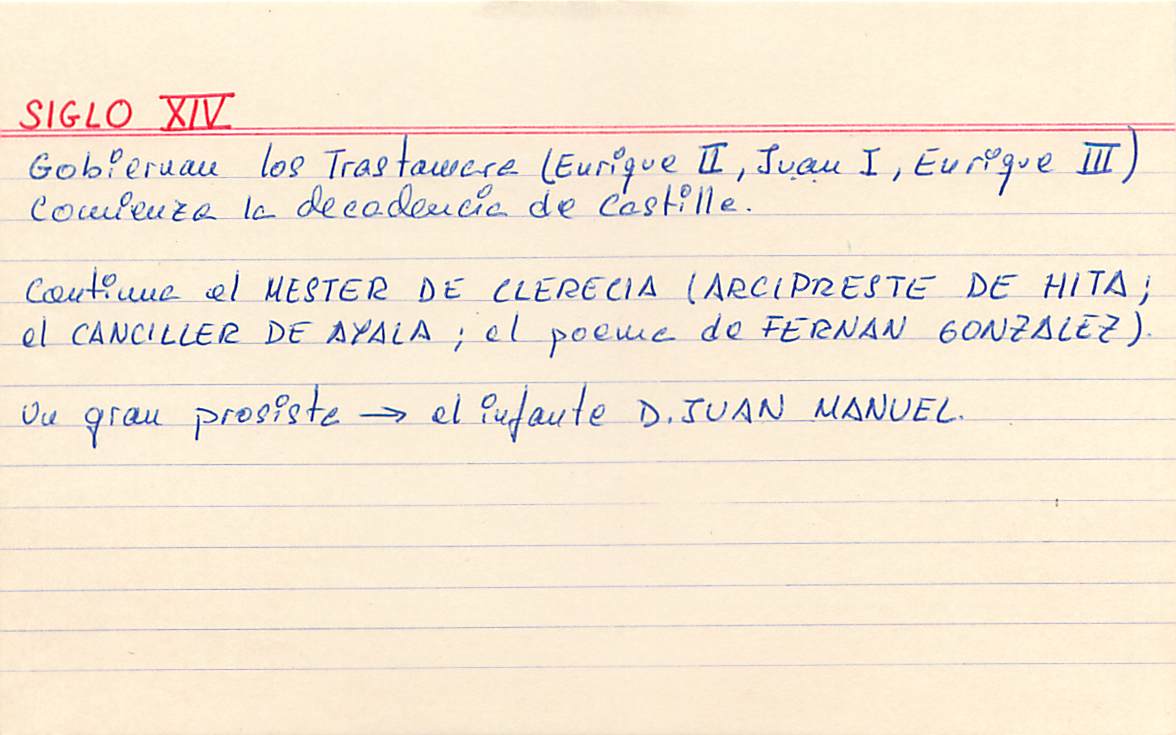 SIGLO XIV
Gobiernan los Trastamara (Enrique II, Juan I, Enrique III)
Comienza la decadencia de Castilla.
Continua el MESTER DE CLERECIA (ARCIPRESTE DE HITA;
el CANCILLER DE AYALA; el poema de FERNAN GONZALEZ).
Un gran prosista → el infante D. JUAN MANUEL.